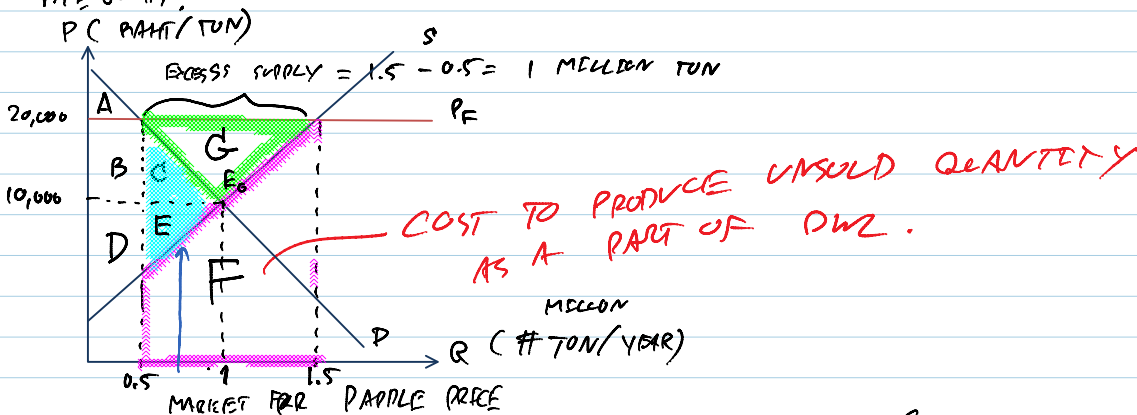 P ( BAHT / TON)
S
EXCESS SUPPLY = 1.5 - 0.5 = 1 MILLION TON
A
20,000
PF
G
B
C
E₀
10,000
COST TO PRODUCE UNSOLD QUANTITY
AS A PART OF DWL.
E
D
F
MILLION
D
Q ( # TON/YEAR)
0.5
1
1.5
MARKET FOR PADDLE PRICE